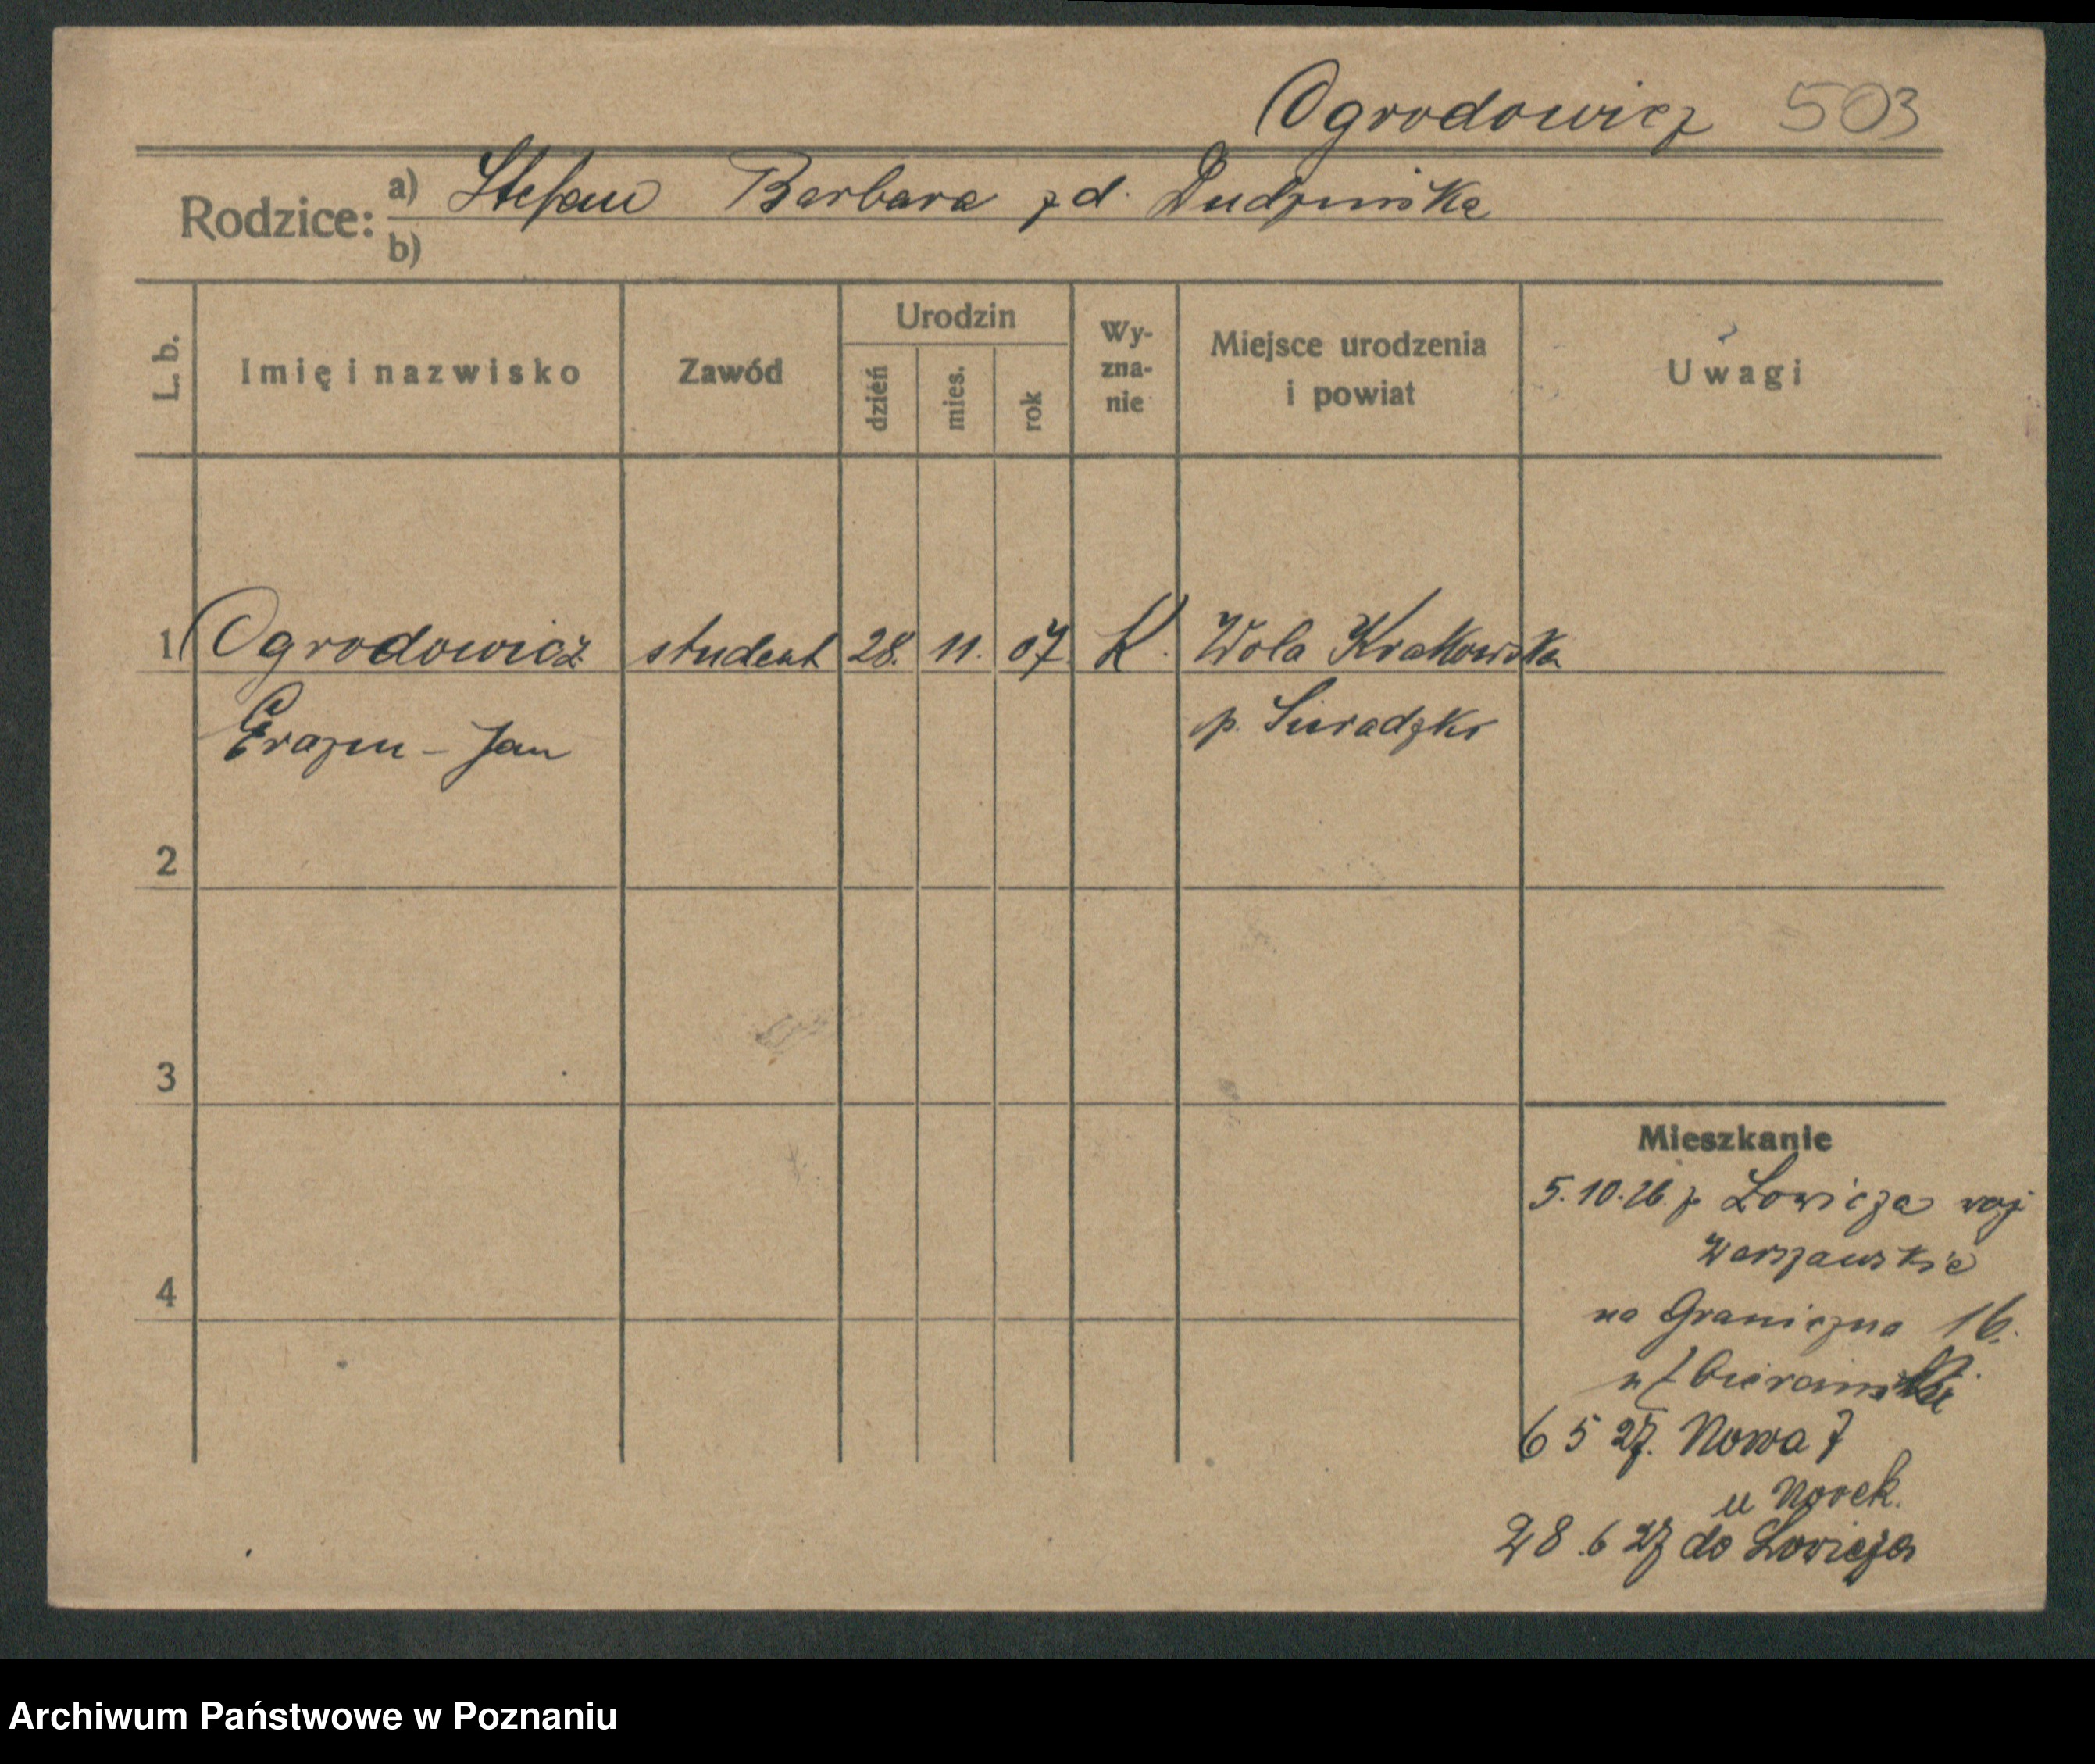 Ogrodowicz 503
Rodzice: a) Stefan Barbara z d. Dudzińska
b)
L. b.
Imię i nazwisko
Zawód
Urodzin
dzień
mies.
rok
Wy-
zna-
nie
Miejsce urodzenia
i powiat
Uwagi
1 Ogrodowicz student 28. 11. 07. K. Wola Krakowska
Erazm - Jan p. Sieradzki
2
3
4
Mieszkanie
5.10.26. z Łowicza woj
Warszawskie
na Graniczna 16.
u
6 5 27. Nowa 7
u Norek.
28.6 27 do Łowicza
Archiwum Państwowe w Poznaniu